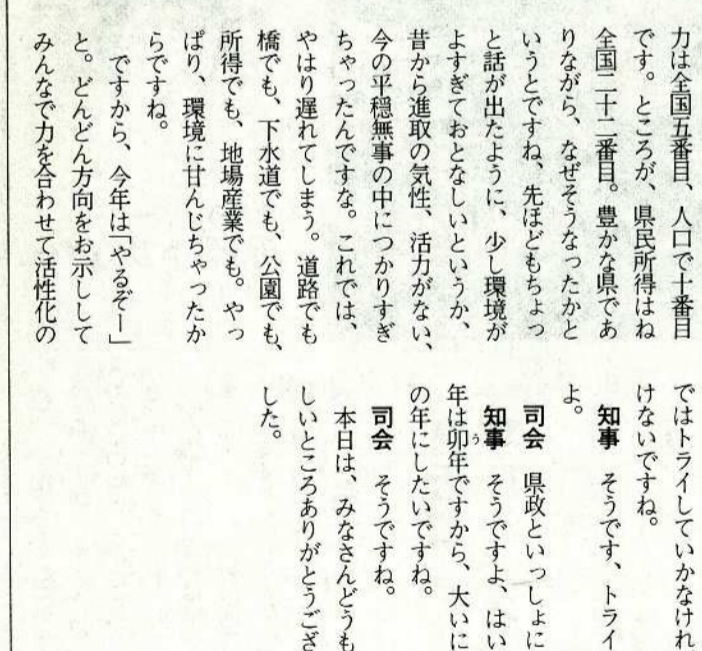 力は全国五番目、人口で十番目
です。ところが、県民所得はね
全国二十二番目。豊かな県であ
りながら、なぜそうなったかと
いうとですね、先ほどもちょっ
と話が出たように、少し環境が
よすぎておとなしいというか、
昔から進取の気性、活力がない、
今の平穏無事の中につかりすぎ
ちゃったんですな。これでは、
やはり遅れてしまう。道路でも
橋でも、下水道でも、公園でも、
所得でも、地場産業でも。やっ
ぱり、環境に甘んじちゃったか
らですね。
ですから、今年は「やるぞー」
と。どんどん方向をお示しして
みんなで力を合わせて活性化の
ではトライしていかなけれ
けないですね。
知事　そうです、トライ
よ。
司会　県政といっしょに
知事　そうですよ、はい
年は卯年ですから、大いに
う
の年にしたいですね。
司会　そうですね。
本日は、みなさんどうも
しいところありがとうござ
した。